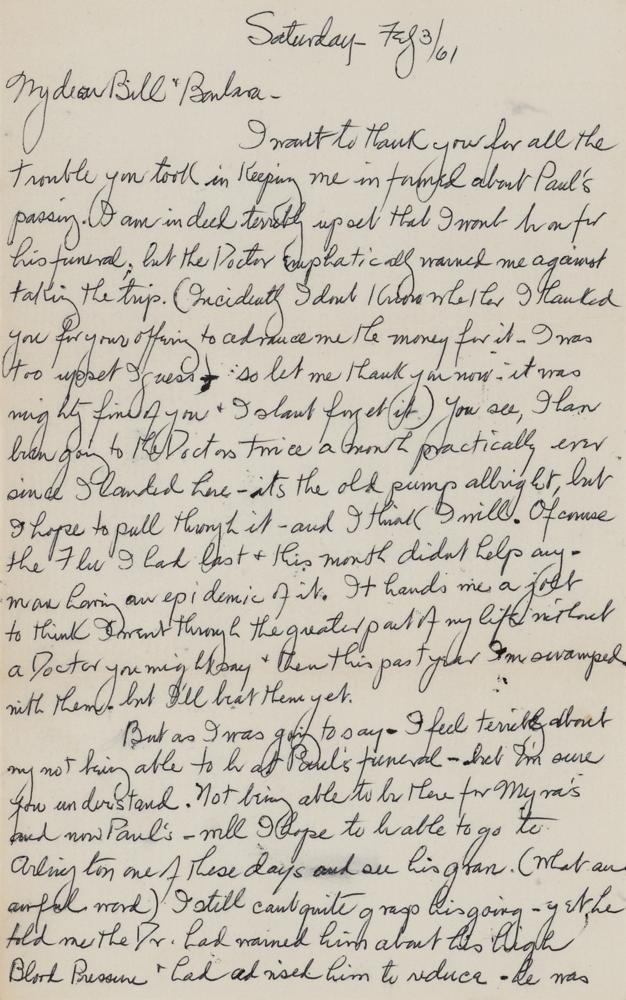 Saturday - Feb 3/61
My dear Bill & Barbara -
I want to thank you for all the
trouble you took in keeping me informed about Paul's
passing. I am indeed terribly upset that I wont be on for
his funeral, but the Doctor emphatically warned me against
taking the trip. (Incidently I dont know whether I thanked
you for your offering to advance me the money for it - I was
too upset I guess - so let me thank you now - it was
mighty fine of you & I shant forget it.) You see, I han
been going to the Doctors twice a month practically ever
since I landed here - its the old pump allright, but
I hope to pull through it - and I think I will. Ofcourse
the Flu I had last & this month didnt help any -
man having an epidemic of it. It hands me a jolt
to think I went through the greater part of my life without
a Doctor you might say & then this past year I'm swamped
with them - but I'll beat them yet.
But as I was going to say - I feel terribly about
my not being able to be at Paul's funeral - but I'm sure
you understand. Not being able to be there for Myra's
and now Paul's - well I hope to be able to go to
Arlington one of these days and see his grave. (What an
awful word) I still cant quite grasp his going - yet he
told me the Dr. had warned him about his high
Blood Pressure & had advised him to reduce - he was